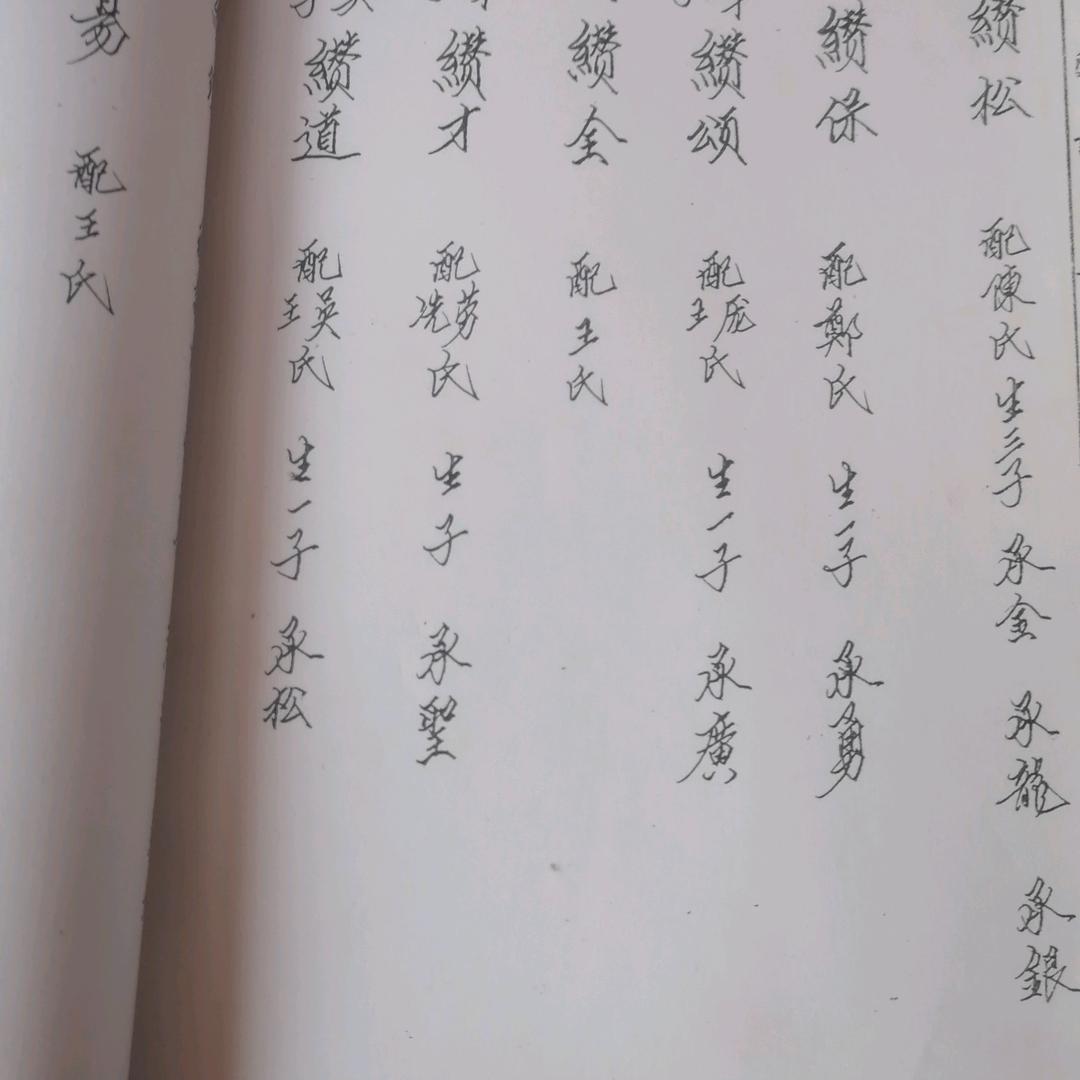 纘松 配陳氏 生三子 承金 承龍 承銀
纘保 配鄭氏 生一子 承勇
纘頌 配龐王氏 生一子 承廣
纘全 配王氏
纘才 配勞冼氏 生子 承聖
纘道 配吳王氏 生一子 承松
易 配王氏